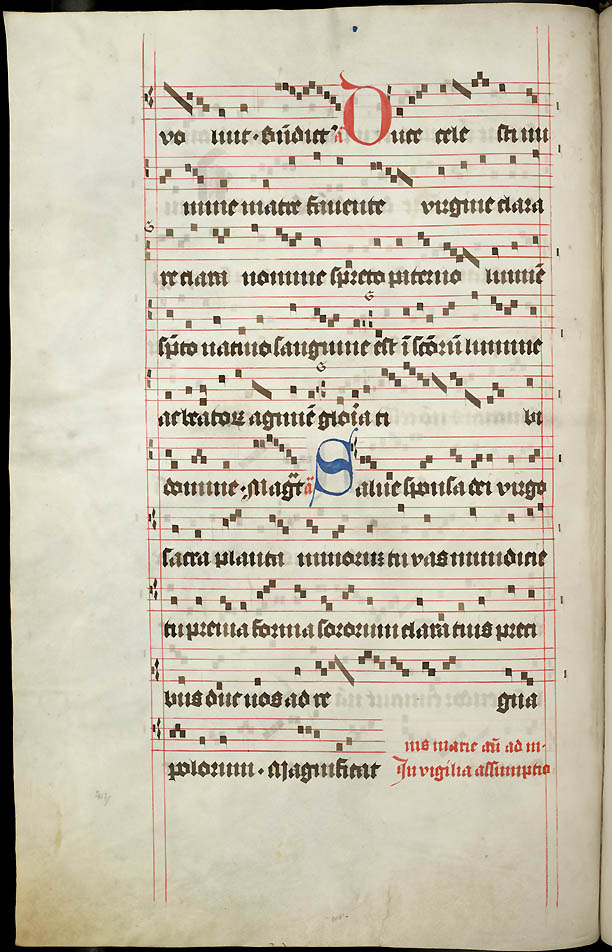 vo luit · Bn̄dict' ã Duce cele sti nu
mine matre favente virgine clara
re clara nomine spreto paterno lumine
sp̄co natiuo sanguine est ī sc̄oꝝ lumine
ac beatoꝝ agmine gloīa ti bi
domine · Mag̃t ã Salue sponsa dei virgo
sacra planta minorum tu vas mundicie
tu preuia forma sororum clara tuis preci
bus duc nos ad re gna
polorum · Magnificat
nis marie añ ad m̃·
In vigilia assumptio